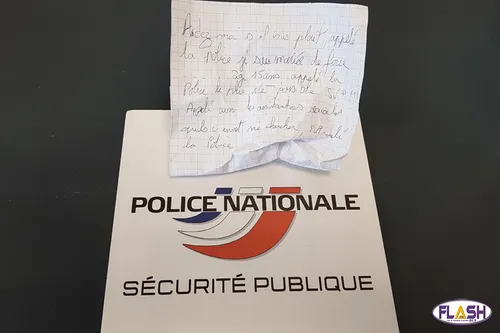 Aidez moi s'il vous plait appelé
la Police je suis mariée de force
ag 15ans appelé la
Police le plus vite possible S.V.P !!!
Appelé aussi les assistantes sociales
qu'ils me chercher,
la Police
POLICE NATIONALE
SÉCURITÉ PUBLIQUE
FLASH